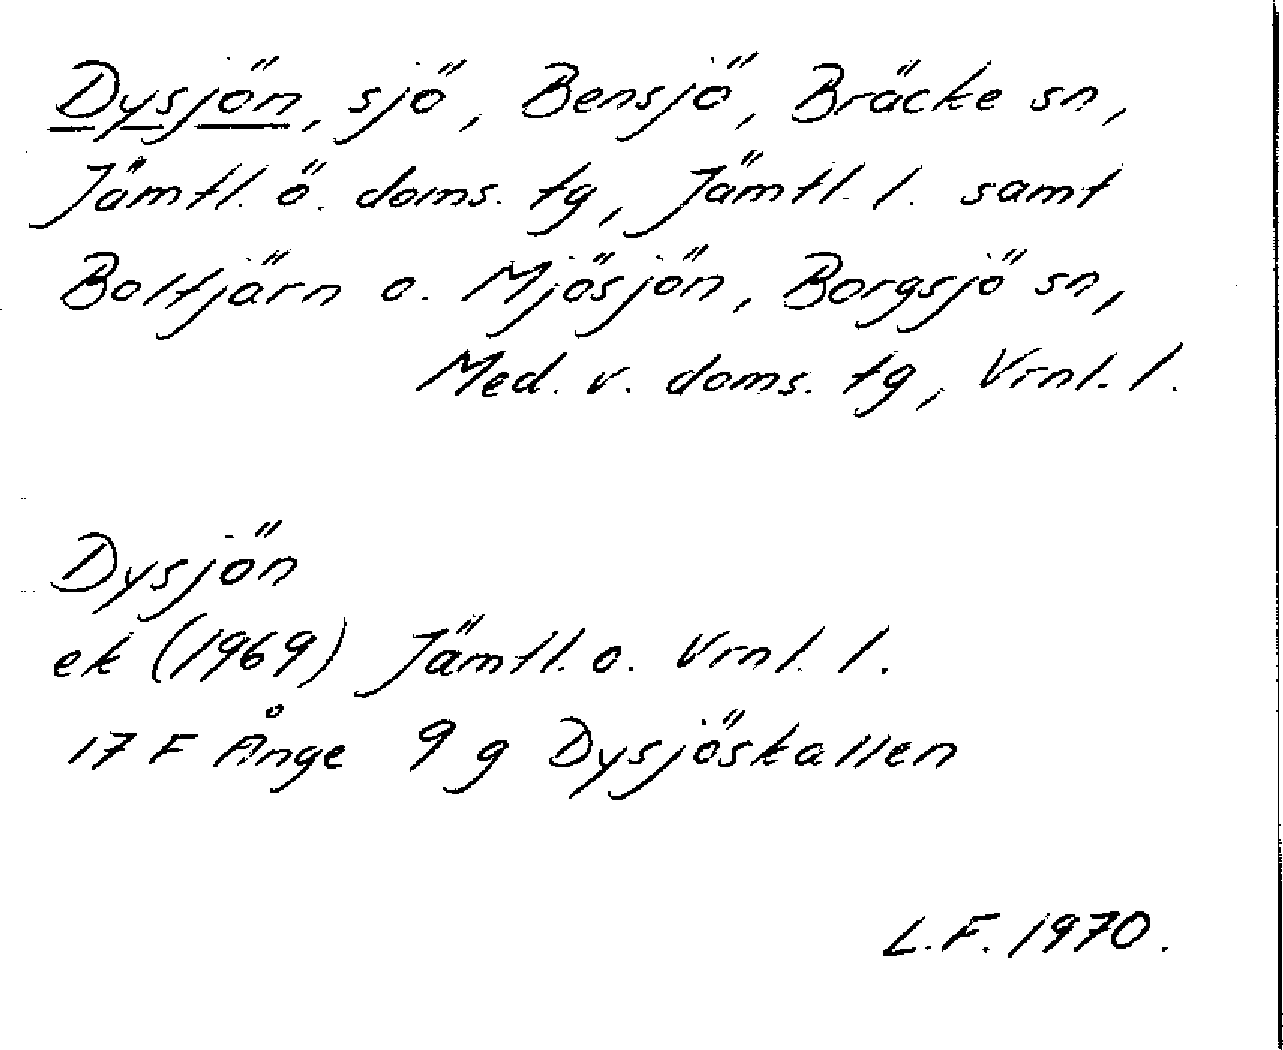 Dysjön, sjö, Bensjö, Bräcke sn,
Jämtl. ö. doms. tg, Jämtl. l. samt
Boltjärn o. Mjösjön, Borgsjö sn,
Med. v. doms. tg, Vrnl. l.
Dysjön
ek (1969) Jämtl. o. Vrnl. l.
17 F Ånge 9 g Dysjöskallen
L.F. 1970.